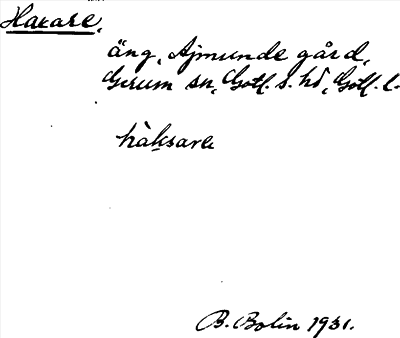 Haxare,
äng, Ajmunde gård,
Gerum sn, Gotl. s. hd, Gotl. l.
hàksare
B. Bolin 1931.